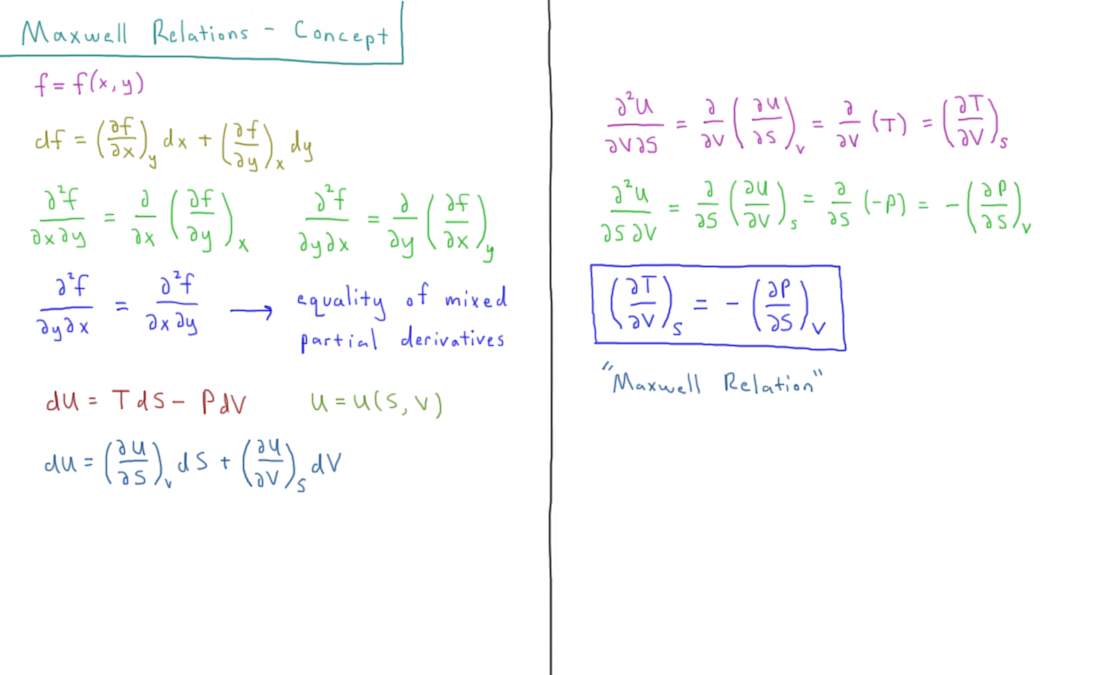 Maxwell Relations - Concept
f = f(x, y)
df = (∂f/∂x)_y dx + (∂f/∂y)_x dy
∂²f/∂x∂y = ∂/∂x (∂f/∂y)_x   ∂²f/∂y∂x = ∂/∂y (∂f/∂x)_y
∂²f/∂y∂x = ∂²f/∂x∂y → equality of mixed
partial derivatives
dU = TdS - PdV   U = U(S, V)
dU = (∂U/∂S)_V dS + (∂U/∂V)_S dV
∂²U/∂V∂S = ∂/∂V (∂U/∂S)_V = ∂/∂V (T) = (∂T/∂V)_S
∂²U/∂S∂V = ∂/∂S (∂U/∂V)_S = ∂/∂S (-P) = -(∂P/∂S)_V
(∂T/∂V)_S = -(∂P/∂S)_V
"Maxwell Relation"